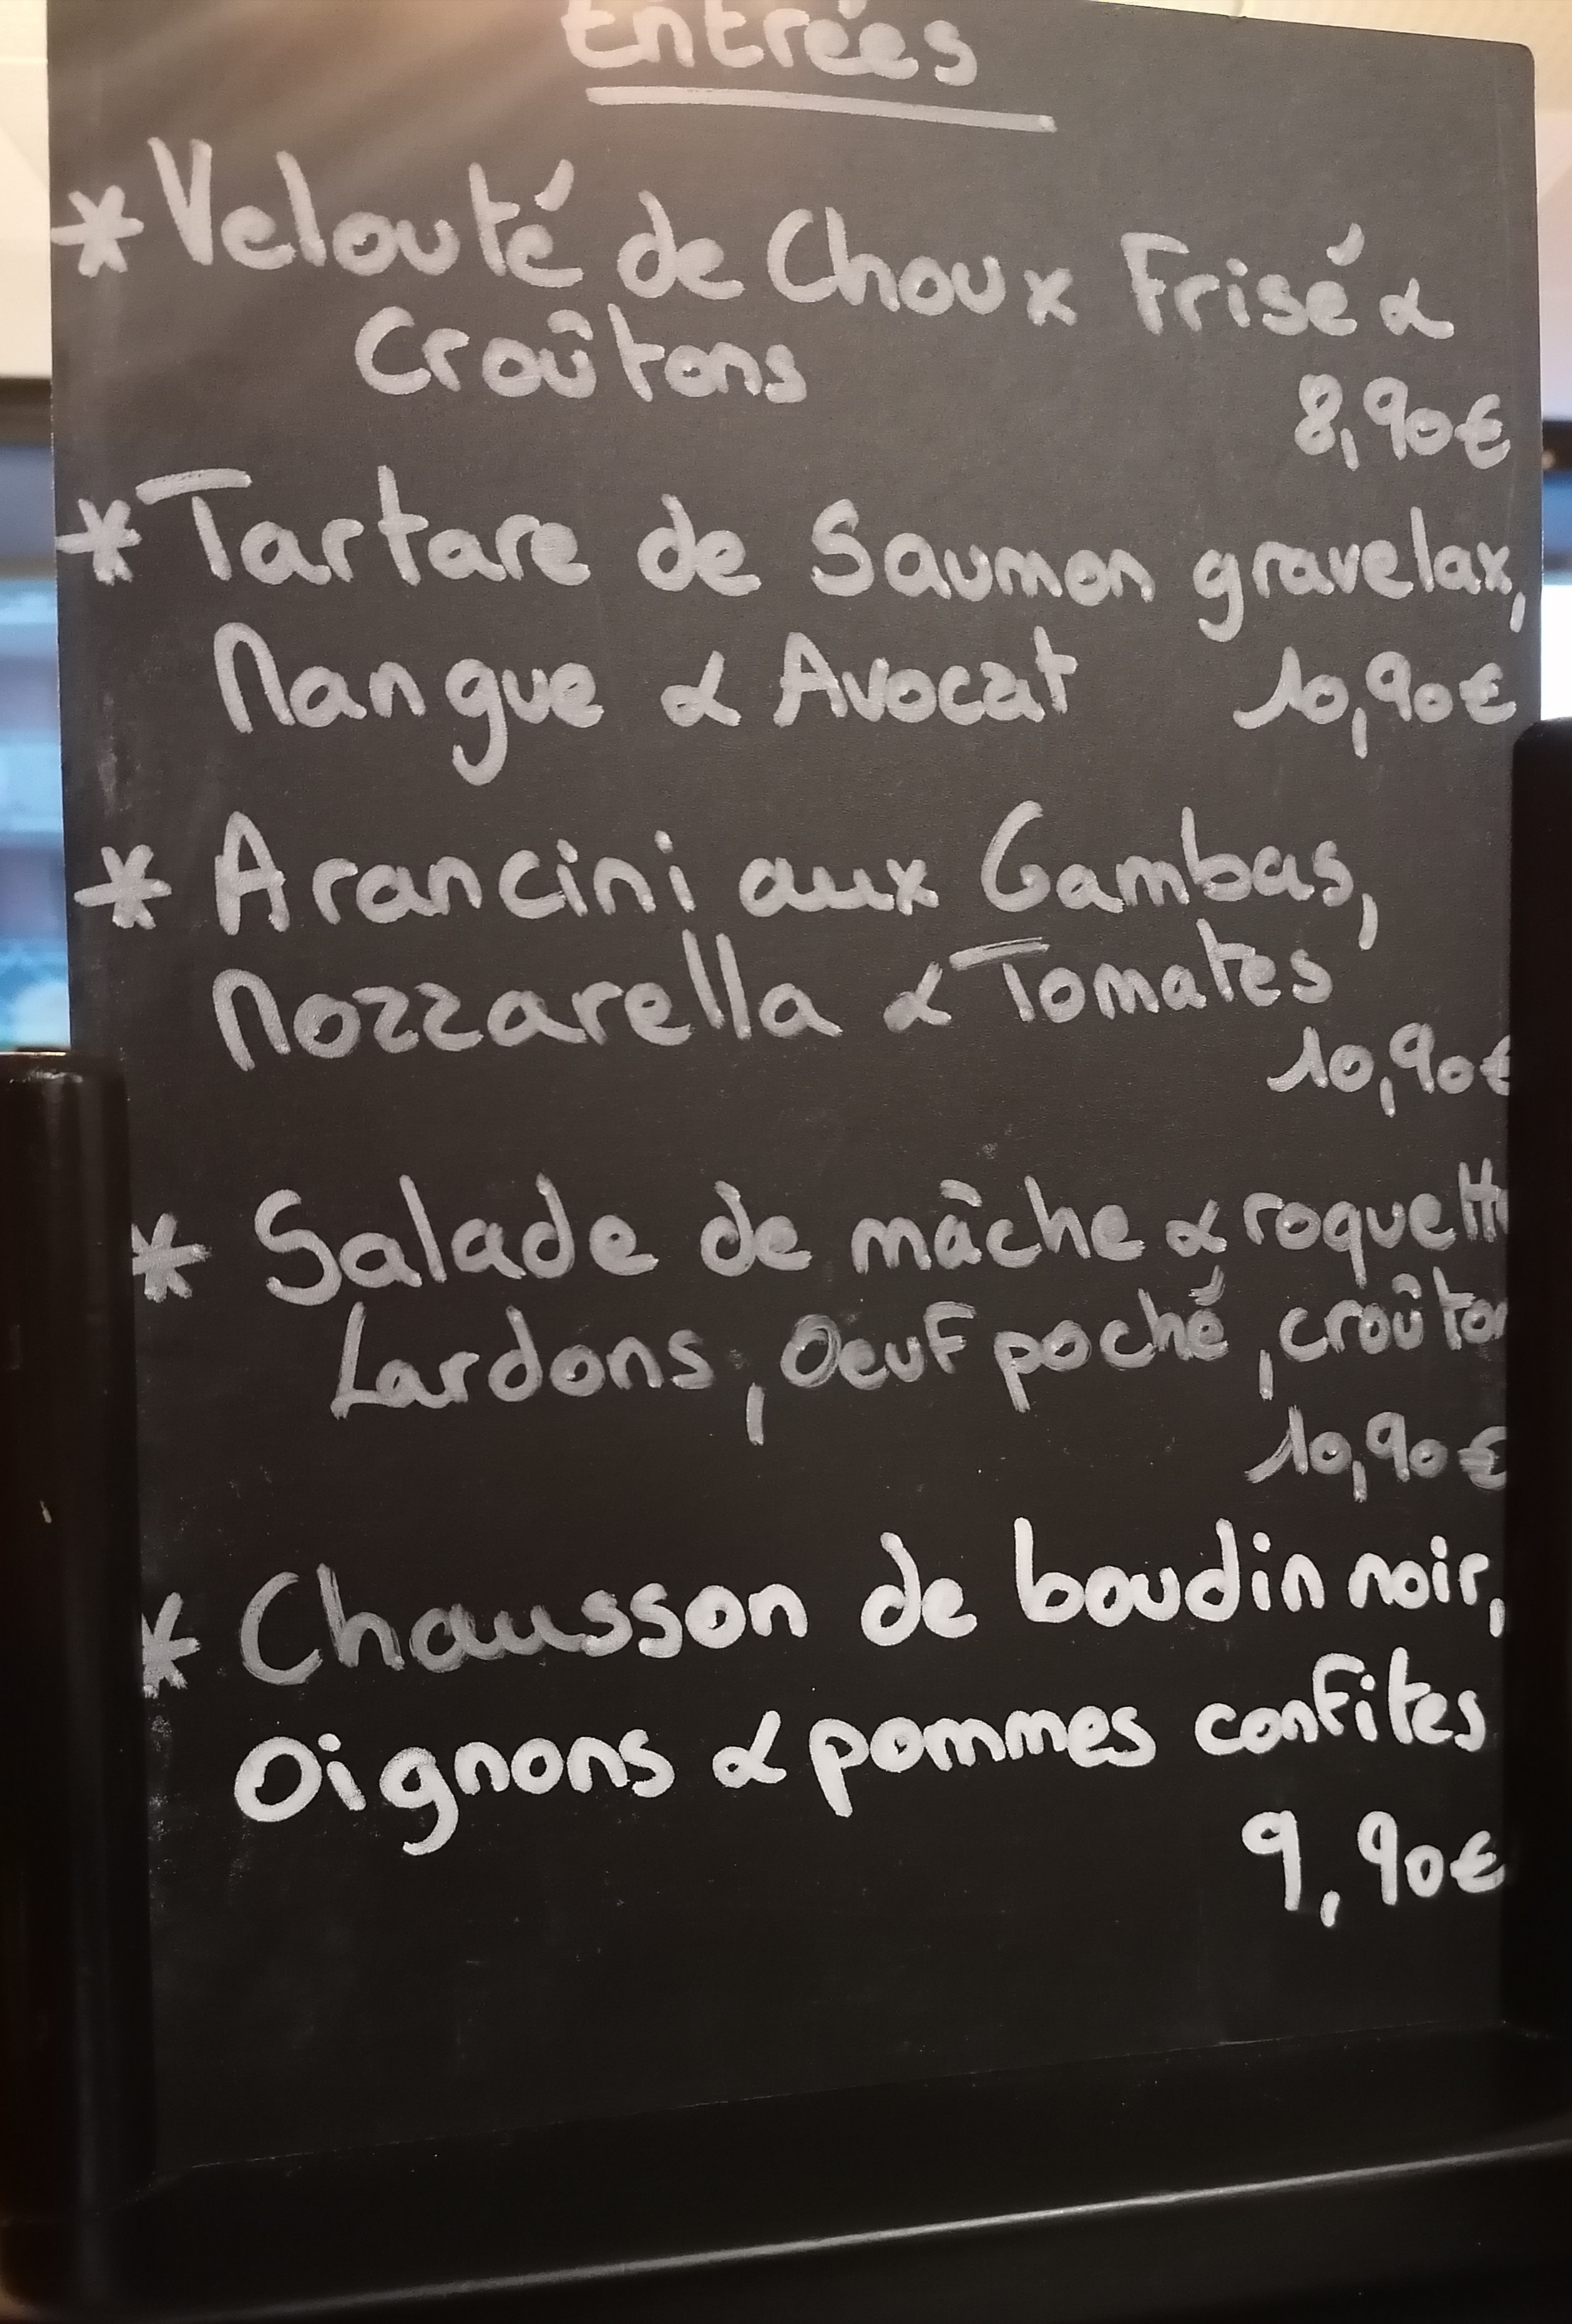 Entrées
* Velouté de Choux Frisé &
Croûtons
8,90€
* Tartare de Saumon gravelax,
Mangue & Avocat 10,90€
* Arancini aux Gambas,
Mozzarella & Tomates
10,90€
* Salade de mâche & roquette
Lardons, Oeuf poché, croûton
10,90€
* Chausson de boudin noir,
Oignons & pommes confites
9,90€